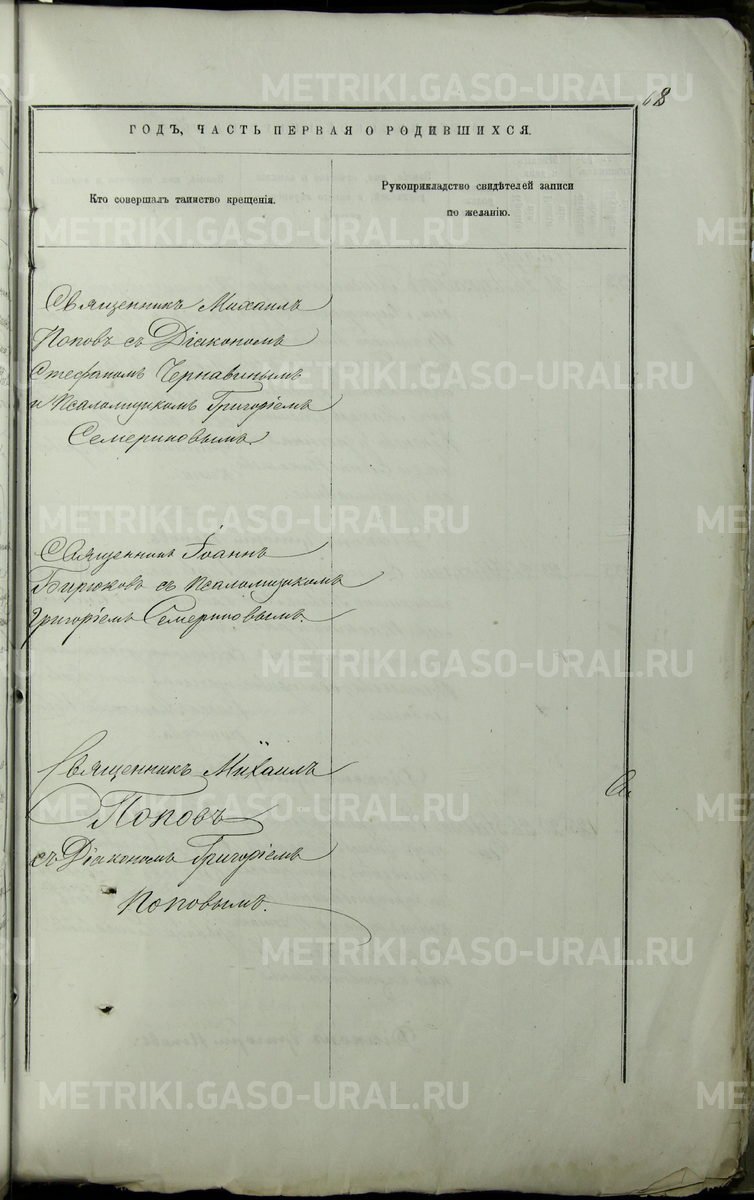 68
ГОДЪ, ЧАСТЬ ПЕРВАЯ О РОДИВШИХСЯ.
Кто совершалъ таинство крещенія.
Рукоприкладство свидѣтелей записи
по желанію.
Священникъ Михаилъ
Поповъ съ Діакономъ
Стефаномъ Чернавинымъ
и Псаломщикомъ Григоріемъ
Семериновымъ
Священникъ Іоаннъ
Бирюковъ съ Псаломщикомъ
Григоріемъ Семериновымъ.
Священникъ Михаилъ
Поповъ
съ Діакономъ Григоріемъ
Поповымъ.
METRIKI.GASO-URAL.RU